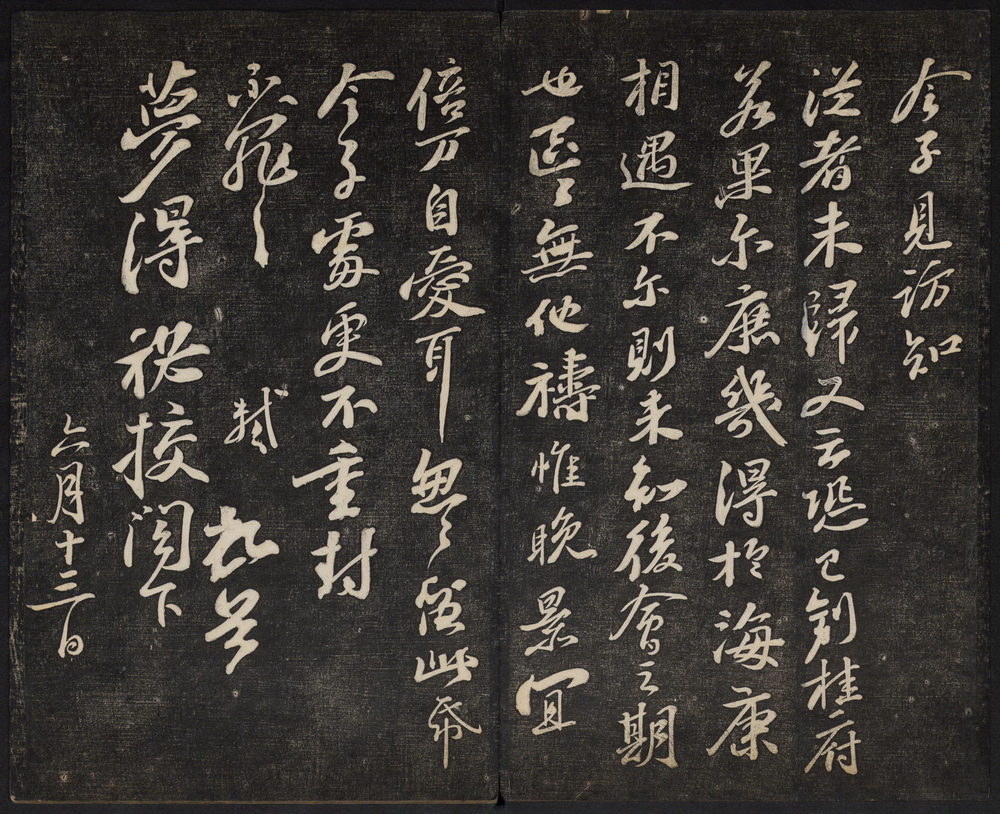 令子見訪知
從者未歸又云恐已到桂府
若果尔庶幾得於海康
相遇不尔則未知後會之期
也區〻無他禱惟晚景宜
倍万自愛耳怱〻留此帋
令子處更不重封
不罪〻　軾頓首
夢得秘校閣下
六月十三日